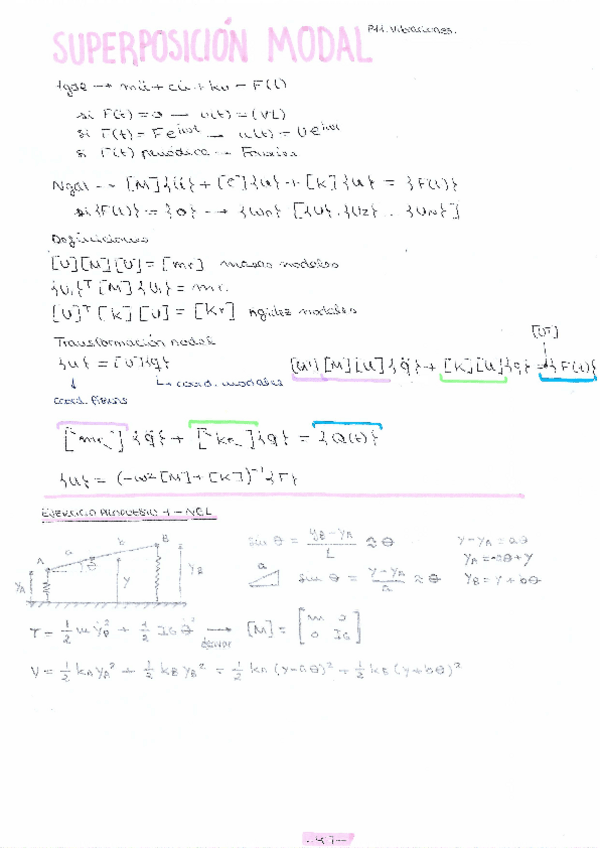 SUPERPOSICIÓN MODAL
P11. Vibraciones.
1gdl → mü + cu̇ + ku = F(t)
si F(t) = 0 → u(t) = (VL)
si F(t) = Fe^{iωt} → u(t) = Ue^{iωt}
si F(t) periódica → Fourier
Ngdl → [M]{ü} + [C]{u̇} + [K]{u} = {F(t)}
si {F(t)} = {0} → {ωn} [{U1}.{U2} . {UN}]
Definiciones
[U][M][U] = [mr] masas modales
{Ui}ᵀ[M]{Ui} = mi
[U]ᵀ[K][U] = [Kr] rigidez modales
Transformación modal
{u} = [U]{q}
coord. modales
coord. físicas
[Uᵀ]
[Uᵀ][M][U]{q̈} + [K][U]{q} = {F(t)}
[mr]{q̈} + [kr]{q} = {Q(t)}
{U} = (-ω²[M] + [K])⁻¹{F}
EJERCICIO PROPUESTO 1 - NGL
A a b B
yA θ y yB
sin θ = (yB - yA)/L ≈ θ
a sin θ = (y - yA)/a ≈ θ
y - yA = aθ
yA = -aθ + y
yB = y + bθ
T = 1/2 m ẏ² + 1/2 IG θ̇² → derivar [M] = [m 0
0 IG]
V = 1/2 kA yA² + 1/2 kB yB² = 1/2 kA (y - aθ)² + 1/2 kB (y + bθ)²
-47-